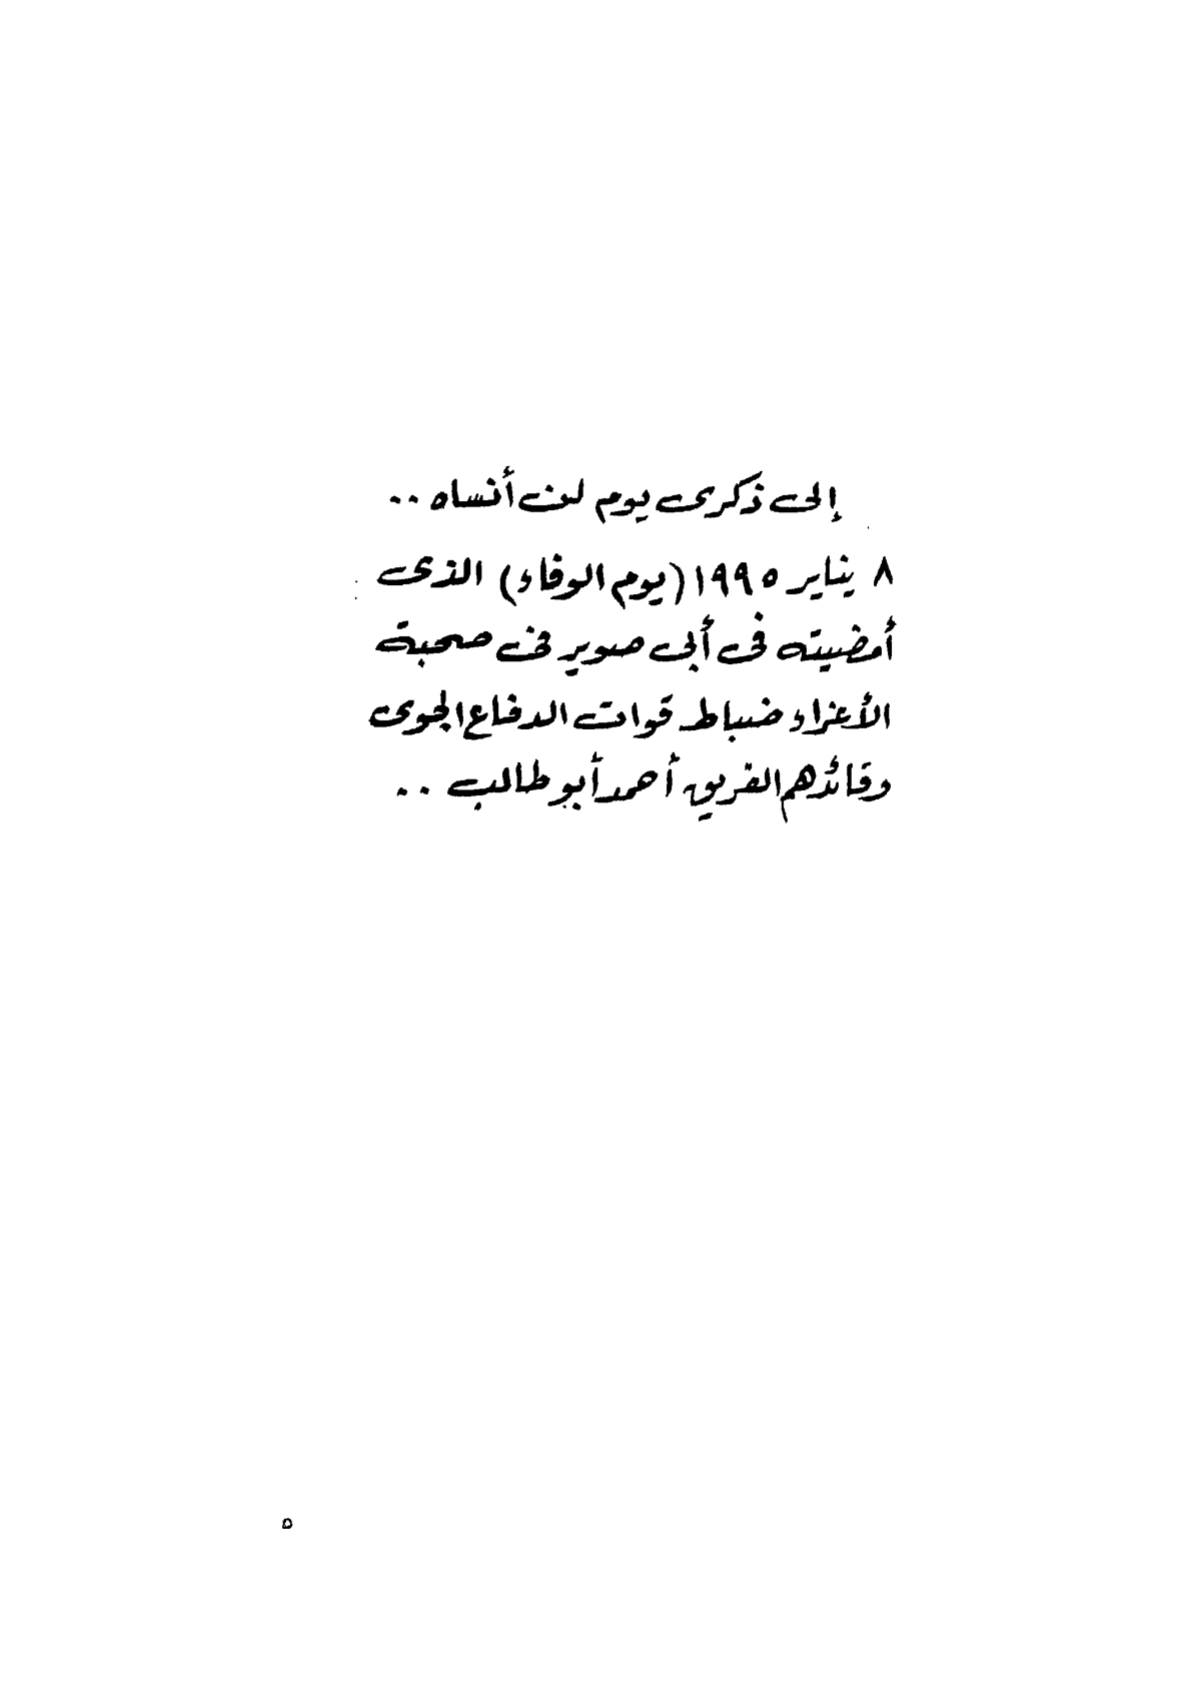 إلى ذكرى يوم لن أنساه ..
٨ يناير ١٩٩٥ (يوم الوفاء) الذى
أمضيته فى أبى صوير فى صحبة
الأعزاء ضباط قوات الدفاع الجوى
وقائدهم الفريق أحمد أبو طالب ..
٥